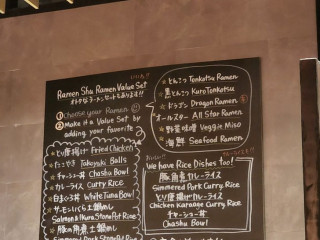 Ramen Shu Ramen Value Set
① Choose your Ramen
② Make it a Value Set by
adding your favorite
★とり唐揚げ Fried Chicken
★たこやき Takoyaki Balls
★チャーシュー丼 Chashu Bowl
★カレーライス Curry Rice
White Tuna Bowl
Salmon & Ikura Stone Pot Rice
★豚角煮土鍋めし
Simmered Pork Stone Pot Rice
★とんこつ Tonkotsu Ramen
★黒とんこつ Kuro Tonkotsu
★ドラゴン Dragon Ramen
★オールスター All Star Ramen
★野菜味噌 Veggie Miso
★海鮮 Seafood Ramen
We have Rice Dishes too!
豚角煮カレーライス
Simmered Pork Curry Rice
とり唐揚げカレーライス
Chicken Karaage Curry Rice
チャーシュー丼
Chashu Bowl